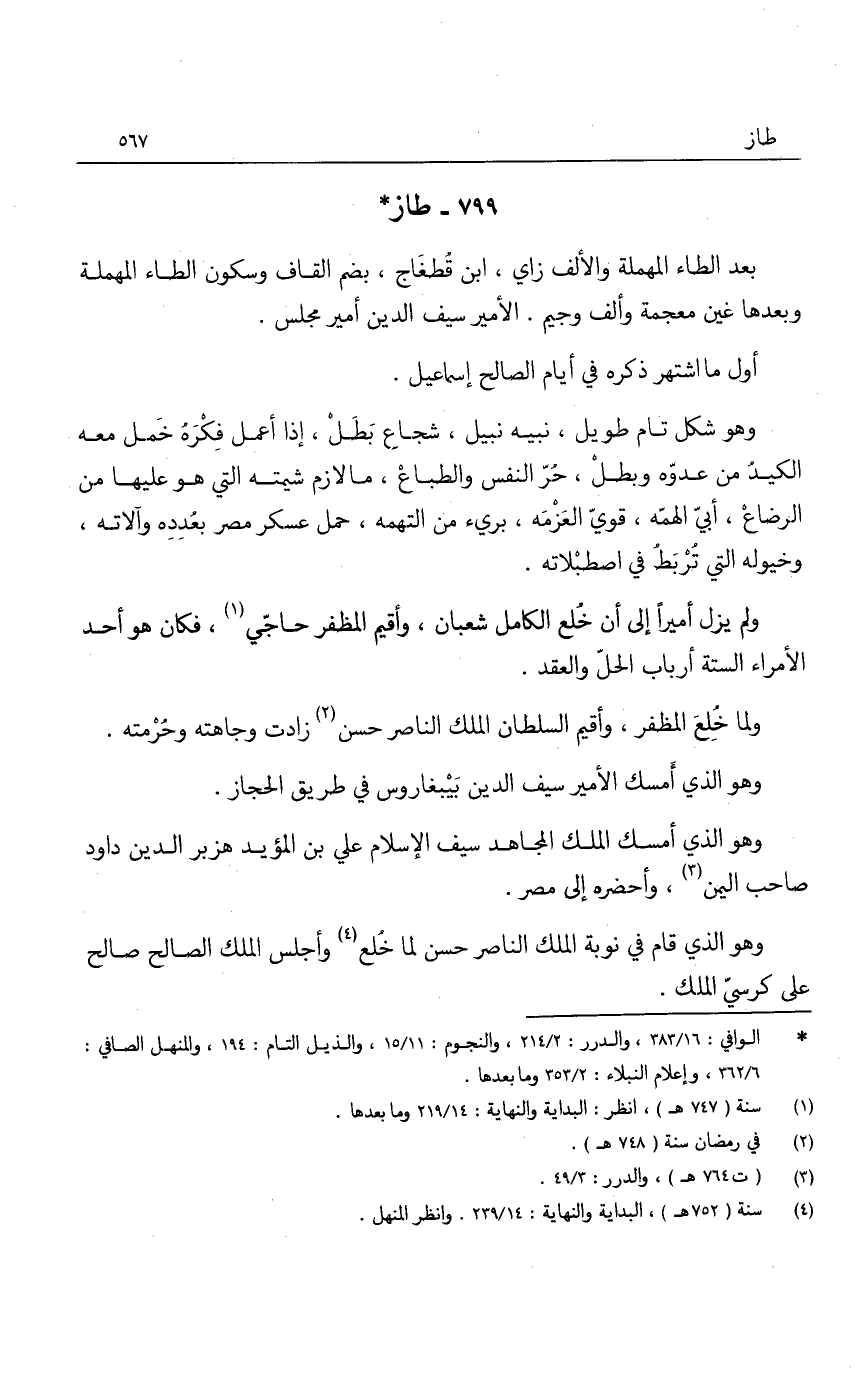 طاز ٥٦٧
٧٩٩ ـ طاز*
بعد الطاء المهملة والألف زاي ، ابن قُطغَاج ، بضم القاف وسكون الطاء المهملة
وبعدها غين معجمة وألف وجيم . الأمير سيف الدين أمير مجلس .
أول ما اشتهر ذكره في أيام الصالح إسماعيل .
وهو شكل تام طويل ، نبيه نبيل ، شجاع بَطَلْ ، إذا أعمل فِكْرَهُ خَمل معه
الكيدُ من عدوّه وبطلْ ، حُرّ النفس والطباعْ ، مالازم شيمته التي هو عليها من
الرضاعْ ، أبيّ الهمّه ، قويّ العَزْمَه ، بريء من التهمه ، حمل عسكر مصر بعُددِه وآلاته ،
وخيوله التي تُرْبَطُ في اصطبْلاته .
ولم يزل أميراً إلى أن خُلع الكامل شعبان ، وأقيم المظفر حاجّي(١) ، فكان هو أحد
الأمراء الستة أرباب الحلّ والعقد .
ولما خُلِعَ المظفر ، وأقيم السلطان الملك الناصر حسن(٢) زادت وجاهته وحُرْمته .
وهو الذي أَمسك الأمير سيف الدين بَيْبغاروس في طريق الحجاز .
وهو الذي أمسك الملك المجاهد سيف الإسلام علي بن المؤيد هزبر الدين داود
صاحب اليمن(٣) ، وأحضره إلى مصر .
وهو الذي قام في نوبة الملك الناصر حسن لما خُلع(٤) وأجلس الملك الصالح صالح
على كرسيّ الملك .
* الوافي : ٣٨٣/١٦ ، والدرر : ٢١٤/٢ ، والنجوم : ١٥/١١ ، والذيل التام : ١٩٤ ، والمنهل الصافي :
٣٦٢/٦ ، وإعلام النبلاء : ٣٥٣/٢ وما بعدها .
(١) سنة ( ٧٤٧ هـ ) ، انظر : البداية والنهاية : ٢١٩/١٤ وما بعدها .
(٢) في رمضان سنة ( ٧٤٨ هـ ) .
(٣) ( ت٧٦٤ هـ ) ، والدرر : ٤٩/٣ .
(٤) سنة ( ٧٥٢هـ ) ، البداية والنهاية : ٢٣٩/١٤ . وانظر المنهل .